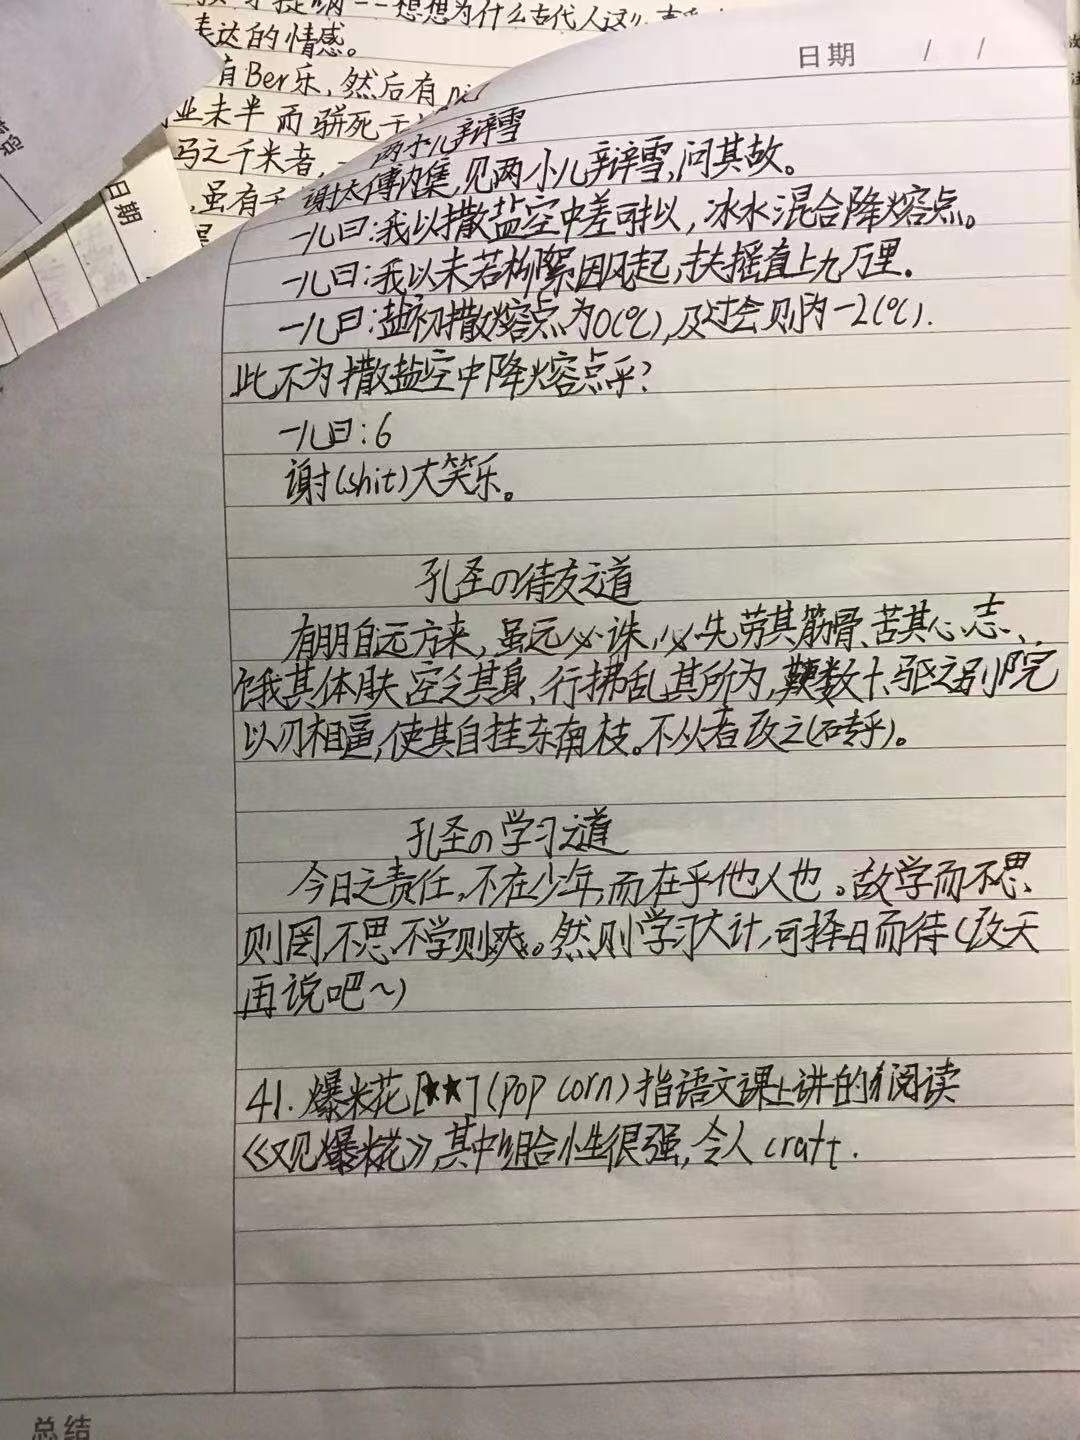 想想为什么古代人这么
表达的情感。
有Ber乐，然后有
业未半而骈死于
马之千米者，
虽有千
日期
日期 / /
两小儿辩雪
谢太傅内集，见两小儿辩雪，问其故。
一儿曰：我以撒盐空中差可拟，冰水混合降熔点。
一儿曰：我以未若柳絮因风起，扶摇直上九万里。
一儿曰：盐初撒熔点为0(℃)，及过会则为-2(℃).
此不为撒盐空中降熔点乎？
一儿曰：6
谢(shit)大笑乐。
孔圣の待友之道
有朋自远方来，虽远必诛，必先劳其筋骨、苦其心志、
饿其体肤、空乏其身、行拂乱其所为，鞭数十、驱之别院
以刃相逼，使其自挂东南枝。不从者改之(砖乎)。
孔圣の学习之道
今日之责任，不在少年，而在乎他人也。故学而不思、
则罔，不思不学则爽。然则学习大计，可择日而待(改天
再说吧～)
41. 爆米花[★★](pop corn)指语文课上讲的阅读
《又见爆米花》，其中组合小生很强，令人craft.
总结